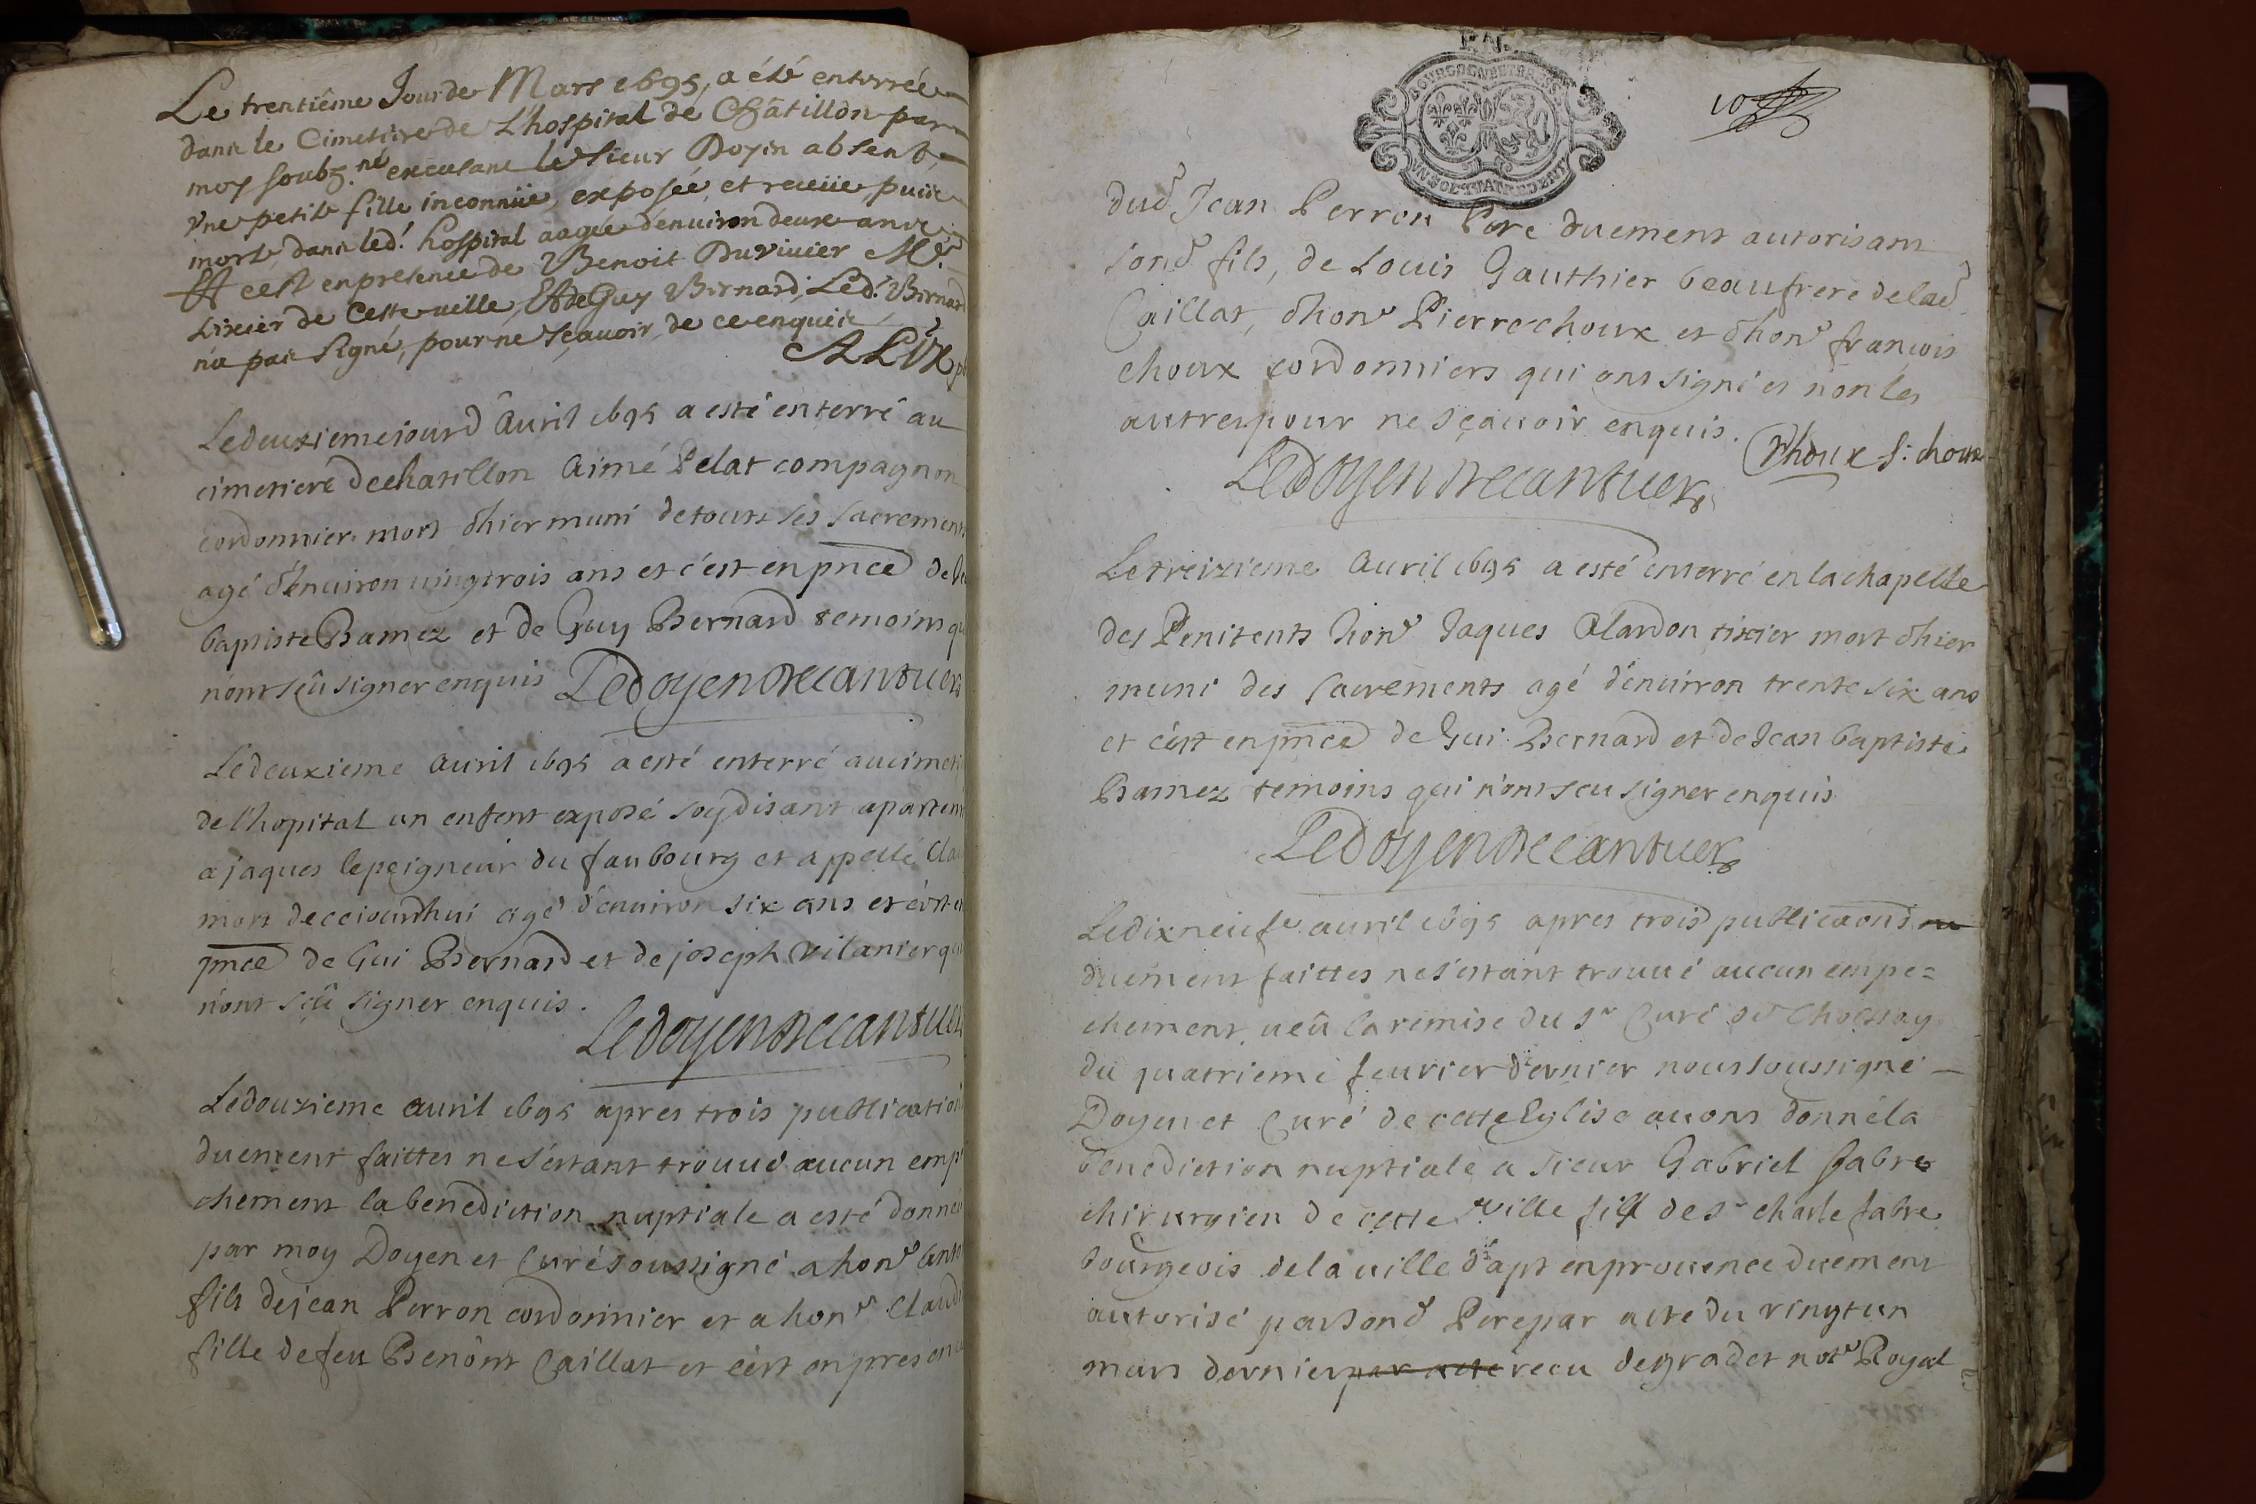 Le trentiême Jour de Mars 1695, a été enterrée
dans le Cimetiere de L'hospital de Châtillon par
moy soubz.né excusant le sieur Doyen absent,
vne petite fille inconnüe, exposée, et receüe, puis
morte dans led. hospital aagée d'enuiron deux ans
Et cest en presence de Benoit Duvivier Me.
tixier de Cette ville, Et de Guy Bernard; Led. Bernard
n'a pas signé, pour ne sçauoir, de ce enquis
ALIX
Le deuxieme jour d'auril 1695 a esté enterré au
cimetiere de chatillon Aimé Pelat compagnon
cordonnier mort d'hier muni de touts ses sacrements
agé d'enuiron uingtrois ans et c'est en pnce de
baptiste Bamez et de Guy Bernard temoins
n'ont sçû signer enquis Ledoyen Decantuer
Le deuxieme auril 1695 a esté enterré au cimeti
de l'hopital un enfent exposé soydisant aparten
a jaques lepeigneur du faubourg et appellé Cla
mort decejourd'hui agé d'enuiron six ans et c'est
pnce de Gui Bernard et de joseph vilanier
n'ont sçû signer enquis.
Ledoyen Decantuer
Le douzieme auril 1695 apres trois publication
duement faittes ne s'estant trouué aucun emp
chement la benediction nuptiale a esté donnée
par moy Doyen et Curé soussigné a honê Anto
fils de jean Perron cordonnier et a honê Claud
fille de feu Benoit Caillat et c'est en presence
10
BOURGOGNE ET BRESSE
UN SOL QUATRE DEN
dud Jean Perron Pere duement autorisant
sond fils, de Louis Gauthier beaufrere de lad
Caillat, d'honê Pierre choux et d'honê françois
choux cordonniers qui ont signé et non les
autres pour ne sçauoir enquis.
Choux f: choux
Ledoyen Decantuer
Le treizieme Auril 1695 a esté enterré en la chapelle
des Penitents honê Jaques Alardon tixier mort d'hier
muni des sacrements agé d'enuiron trente six ans
et c'est en pnce de Gui Bernard et de Jean baptiste
Bamez temoins qui n'ont sceu signer enquis
Ledoyen Decantuer
Le dixneufe auril 1695 apres trois publicaons
duement faittes ne s'estant trouué aucun empe=
chement, ueû la remise du sr Curé de
du quatrieme feurier dernier nous soussigné
Doyen et Curé de cette Eglise auons donné la
benediction nuptiale a sieur Gabriel fabre
chirurgien de cette ville fils de sr charle fabre
bourgeois de la uille d'apt en prouence duement
autorisé par sond Pere par acte du vingt un
mars dernier par acte recu degradet notê Royal